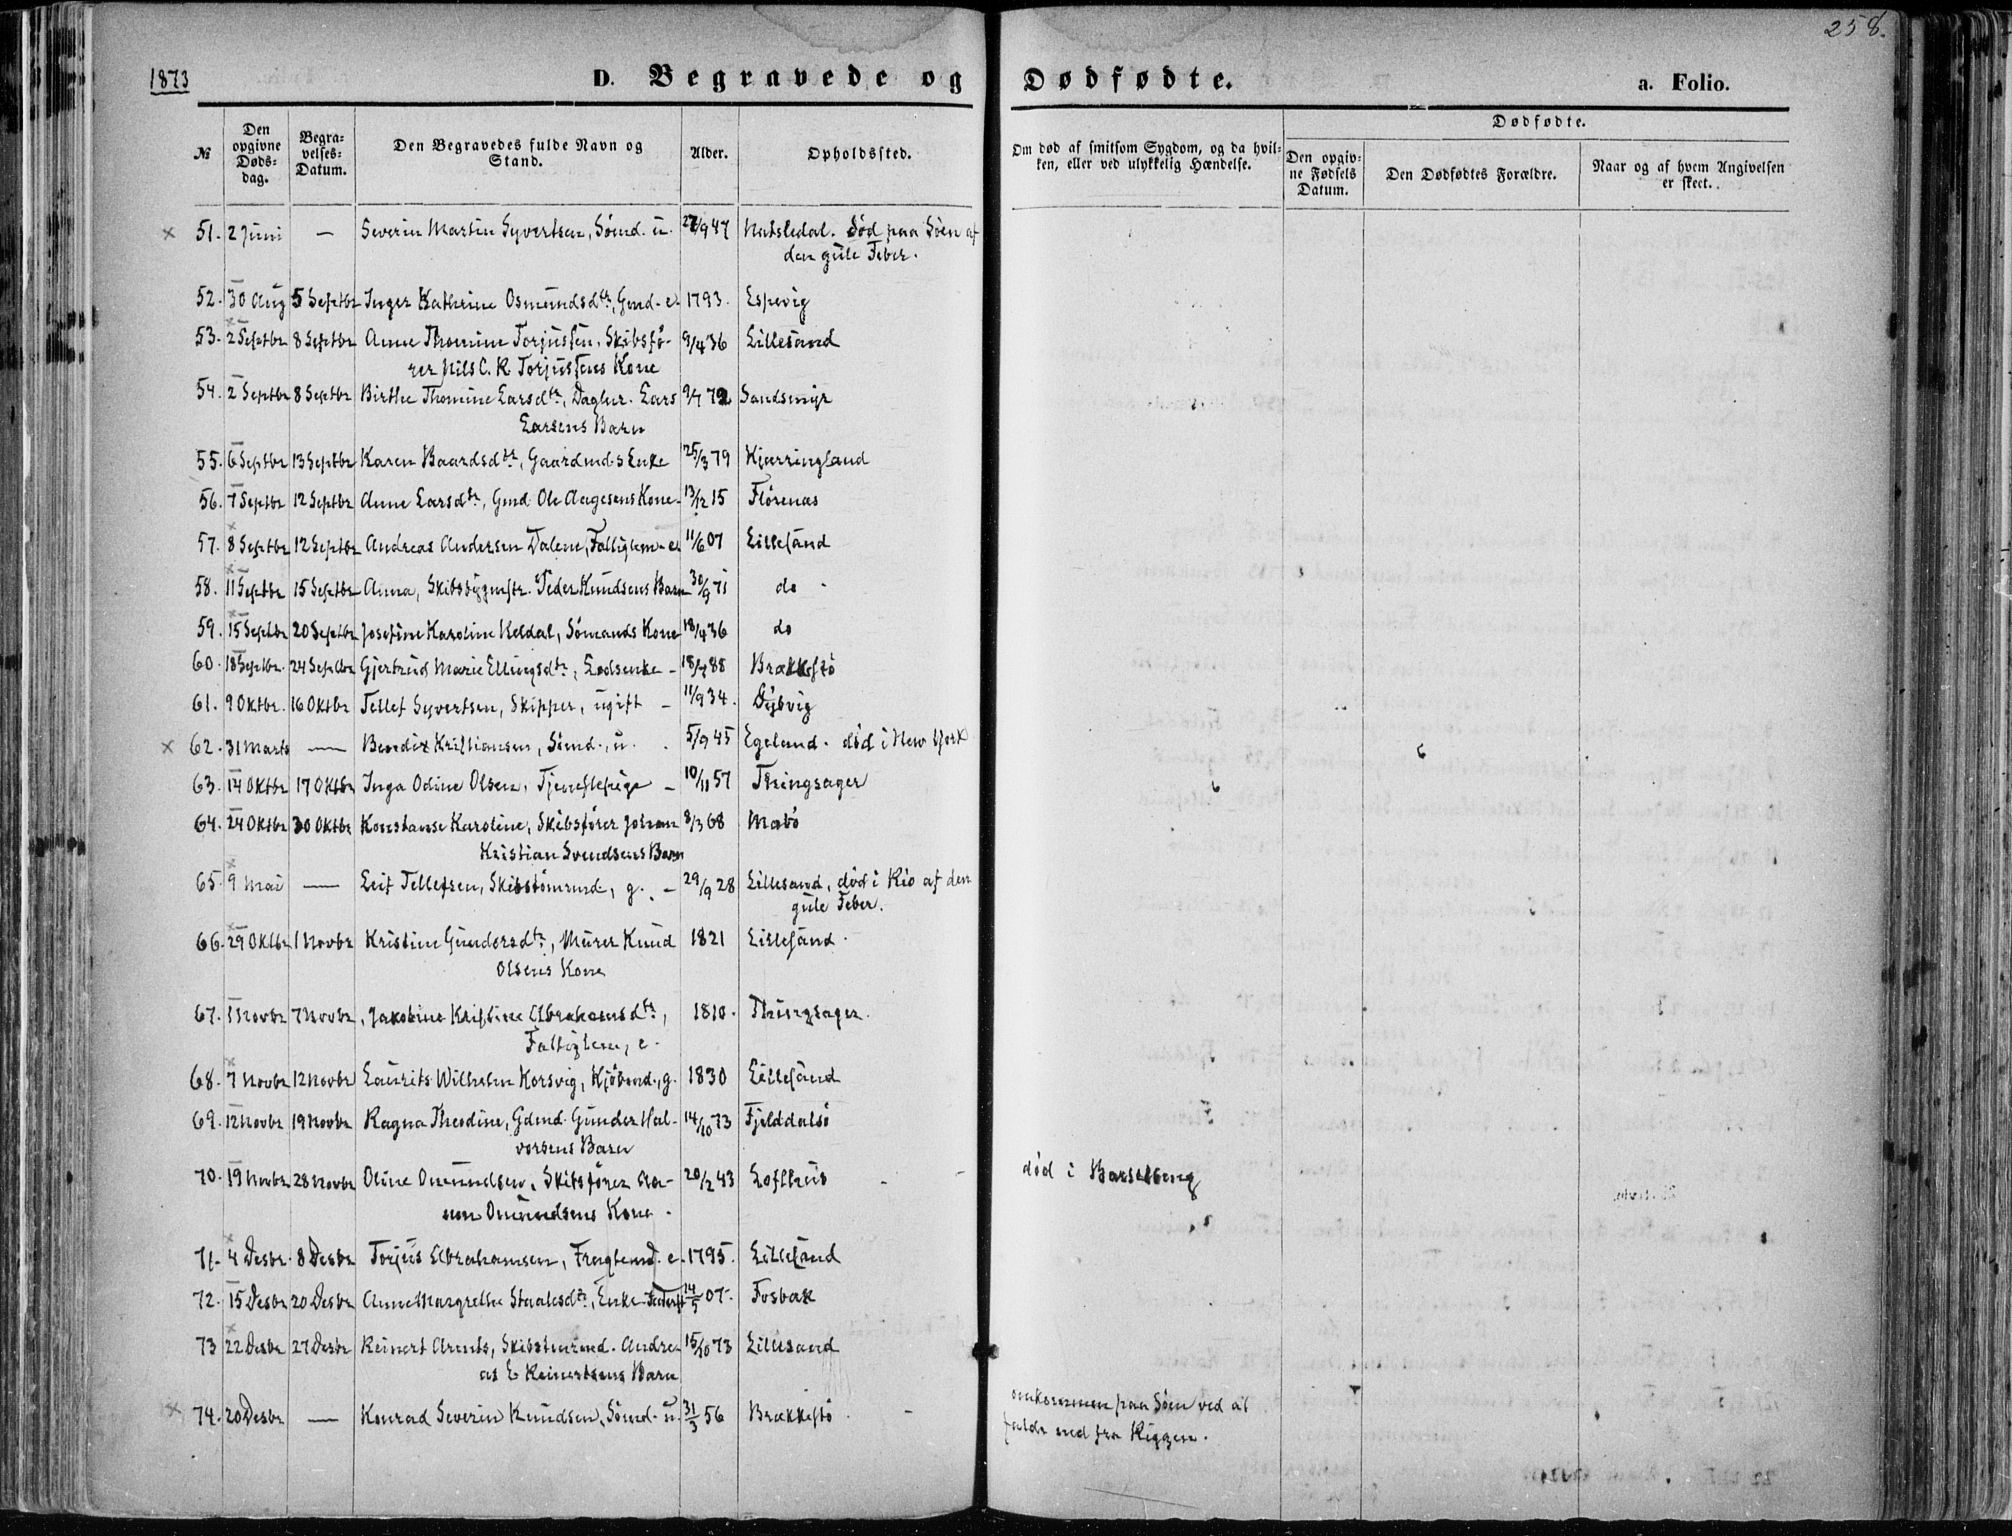 258.
1873
D. Begravede og Dødfødte.
a. Folio.
№
Den opgivne Døds-dag.
Begra-velses-Datum.
Den Begravedes fulde Navn og Stand.
Alder.
Opholdssted.
Om død af smitsom Sygdom, og da hvil-ken, eller ved ulykkelig Hændelse.
Dødfødte.
Den opgiv-ne Fødsels Datum.
Den Dødfødtes Forældre.
Naar og af hvem Angivelsen er skeet.
× 51. 2 Juni — Severin Martin Syvertsen, Sømd. u. 27/9 47 Natsledal. død paa Søen af
den gule Feber.
52. 30 Aug 5 Septbr Inger Kathrine Osmundsdtr, Gmd. e. 1793. Espevig
53. 2 Septbr 8 Septbr Anne Thomine Torjussen, Skibsfø- 9/4 36 Lillesand
rer Nils C. R. Torjussens Kone
54. 2 Septbr 8 Septbr Birthe Thomine Larsdtr, Daglnr. Lars 9/7 72 Sandsmyr
Larsens Barn
55. 6 Septbr 13 Septbr Karen Baardsdtr, Gaardmds Enke 25/3 79 Kjærringland
56. 7 Septbr 12 Septbr Anne Larsdtr, Gmd Ole Aagesens Kone 13/12 15 Flørenæs
57. 8 Septbr 12 Septbr Andreas Andersen Dalene, Fattiglem e. 11/6 07 Lillesand
58. 11 Septbr 15 Septbr Anna, Skibsbygmstr. Peder Knudsens Barn 30/9 71 do
59. 15 Septbr 20 Septbr Josefine Karoline Keldal, Sømands Kone 18/4 36 do
60. 18 Septbr. 24 Septbr Gjertrud Marie Ellingsdtr, Lodsenke 18/7 88 Brækkestø
61. 9 Oktbr. 16 Oktbr Tellef Syvertsen, Skipper, ugift 11/9 34. Dybvig
× 62. 31 Marts — Bendix Kristiansen, Sømd., u. 5/9 45 Egeland. død i New York
63. 14 Oktbr 17 Oktbr Inga Odine Olsen, Tjenestepige 10/11 57 Thingsager
64. 24 Oktbr 30 Oktbr Konstanse Karoline, Skibsfører Johan 8/3 68 Mabø
Kristian Svendsens Barn
65. 9 Mai — Leif Tellefsen, Skibstømmd, g. 29/9 28 Lillesand, død i Rio af den
gule Feber.
66. 29 Oktbr 1 Novbr Kristine Gundersdtr, Murer Knud 1821 Lillesand.
Olsens Kone
67. 1 Novbr 7 Novbr, Jakobine Kristine Abrahamsdtr, 1810. Thingsager.
Fattiglem, e.
68. 7 Novbr 12 Novbr Laurits Wilhelm Korsvig, Kjøbmd., g. 1830 Lillesand
69. 12 Novbr 19 Novbr Ragna Theodine, Gdmd. Gunder Hal- 14/10 73 Fjelddalsø
vorsens Barn
70. 19 Novbr 28 Novbr Oline Omundsen, Skibsfører Aa- 20/2 43 Lofthus død i Barselseng
non Omundsens Kone.
71. 4 Desbr. 8 Desbr Torjus Abrahamsen, Fragtemd. e. 1795. Lillesand
72. 15 Desbr 20 Desbr Anne Margrethe Staalesdtr, Enke 14/5 07. Fosbæk
73 22 Desbr 27 Desbr Reinert Arents, Skibstømmd. Andre- 15/10 73 Lillesand
as E Reinertsens Barn
× 74. 20 Desbr — Konrad Severin Knudsen, Sømd. u. 31/3 56 Brækkestø. omkommen paa Søen ved at
falde ned fra Riggen.